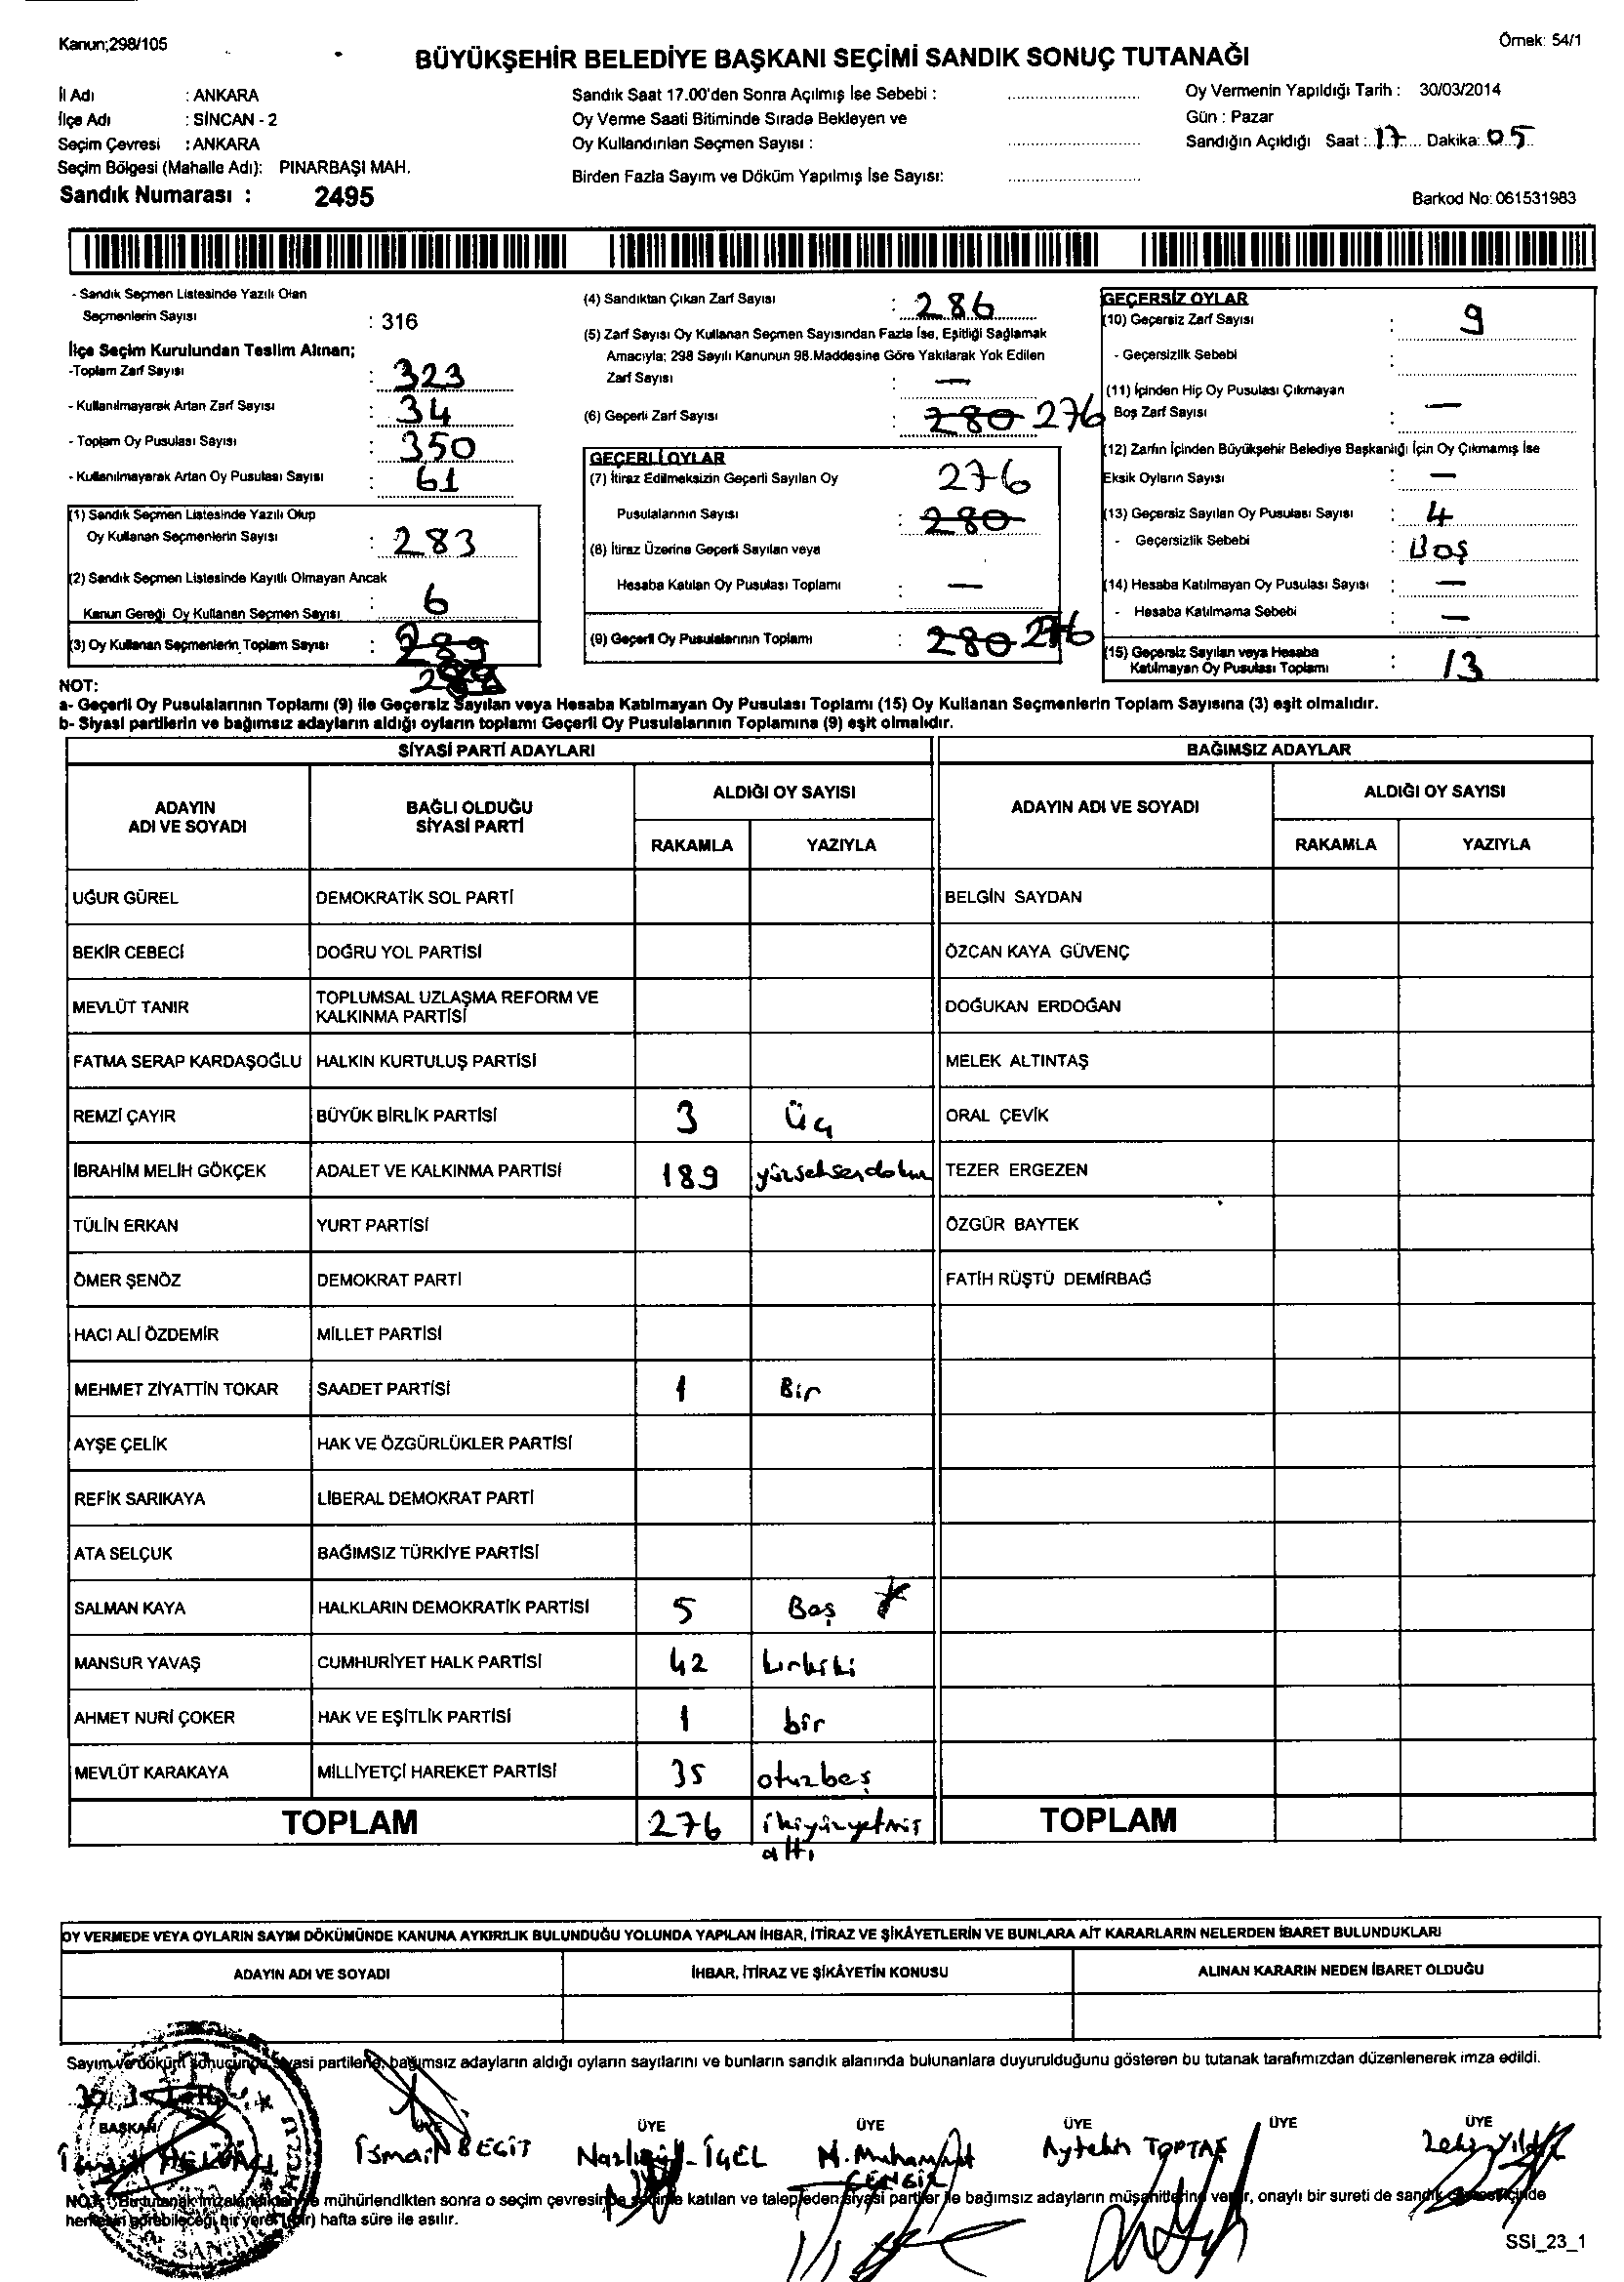 Kanun;298/105
Örnek: 54/1
BÜYÜKŞEHİR BELEDİYE BAŞKANI SEÇİMİ SANDIK SONUÇ TUTANAĞI
İl Adı : ANKARA
İlçe Adı : SİNCAN - 2
Seçim Çevresi : ANKARA
Seçim Bölgesi (Mahalle Adı): PINARBAŞI MAH.
Sandık Numarası : 2495
Sandık Saat 17.00'den Sonra Açılmış İse Sebebi :
Oy Verme Saati Bitiminde Sırada Bekleyen ve
Oy Kullandırılan Seçmen Sayısı :
Birden Fazla Sayım ve Döküm Yapılmış İse Sayısı:
Oy Vermenin Yapıldığı Tarih : 30/03/2014
Gün : Pazar
Sandığın Açıldığı Saat : 17 Dakika: 05
Barkod No: 061531983
- Sandık Seçmen Listesinde Yazılı Olan
Seçmenlerin Sayısı : 316
İlçe Seçim Kurulundan Teslim Alınan;
-Toplam Zarf Sayısı : 323
- Kullanılmayarak Artan Zarf Sayısı : 34
- Toplam Oy Pusulası Sayısı : 350
- Kullanılmayarak Artan Oy Pusulası Sayısı : 61
(1) Sandık Seçmen Listesinde Yazılı Olup
Oy Kullanan Seçmenlerin Sayısı : 283
(2) Sandık Seçmen Listesinde Kayıtlı Olmayan Ancak
Kanun Gereği Oy Kullanan Seçmen Sayısı : 6
(3) Oy Kullanan Seçmenlerin Toplam Sayısı : 289
(4) Sandıktan Çıkan Zarf Sayısı : 286
(5) Zarf Sayısı Oy Kullanan Seçmen Sayısından Fazla İse, Eşitliği Sağlamak
Amacıyla; 298 Sayılı Kanunun 98.Maddesine Göre Yakılarak Yok Edilen
Zarf Sayısı : —
(6) Geçerli Zarf Sayısı : 280 276
GEÇERLİ OYLAR
(7) İtiraz Edilmeksizin Geçerli Sayılan Oy 276
Pusulalarının Sayısı : 280
(8) İtiraz Üzerine Geçerli Sayılan veya
Hesaba Katılan Oy Pusulası Toplamı : —
(9) Geçerli Oy Pusulalarının Toplamı : 280 276
GEÇERSİZ OYLAR
(10) Geçersiz Zarf Sayısı : 9
- Geçersizlik Sebebi :
(11) İçinden Hiç Oy Pusulası Çıkmayan
Boş Zarf Sayısı : —
(12) Zarfın İçinden Büyükşehir Belediye Başkanlığı İçin Oy Çıkmamış İse
Eksik Oyların Sayısı : —
(13) Geçersiz Sayılan Oy Pusulası Sayısı : 4
- Geçersizlik Sebebi : Boş
(14) Hesaba Katılmayan Oy Pusulası Sayısı : —
- Hesaba Katılmama Sebebi : —
(15) Geçersiz Sayılan veya Hesaba
Katılmayan Oy Pusulası Toplamı : 13
NOT:
a- Geçerli Oy Pusulalarının Toplamı (9) ile Geçersiz Sayılan veya Hesaba Katılmayan Oy Pusulası Toplamı (15) Oy Kullanan Seçmenlerin Toplam Sayısına (3) eşit olmalıdır.
b- Siyasi partilerin ve bağımsız adayların aldığı oyların toplamı Geçerli Oy Pusulalarının Toplamına (9) eşit olmalıdır.
SİYASİ PARTİ ADAYLARI BAĞIMSIZ ADAYLAR
ADAYIN ADI VE SOYADI BAĞLI OLDUĞU SİYASİ PARTİ ALDIĞI OY SAYISI ADAYIN ADI VE SOYADI ALDIĞI OY SAYISI
RAKAMLA YAZIYLA RAKAMLA YAZIYLA
UĞUR GÜREL DEMOKRATİK SOL PARTİ BELGİN SAYDAN
BEKİR CEBECİ DOĞRU YOL PARTİSİ ÖZCAN KAYA GÜVENÇ
MEVLÜT TANIR TOPLUMSAL UZLAŞMA REFORM VE KALKINMA PARTİSİ DOĞUKAN ERDOĞAN
FATMA SERAP KARDAŞOĞLU HALKIN KURTULUŞ PARTİSİ MELEK ALTINTAŞ
REMZİ ÇAYIR BÜYÜK BİRLİK PARTİSİ 3 Üç ORAL ÇEVİK
İBRAHİM MELİH GÖKÇEK ADALET VE KALKINMA PARTİSİ 189 TEZER ERGEZEN
TÜLİN ERKAN YURT PARTİSİ ÖZGÜR BAYTEK
ÖMER ŞENÖZ DEMOKRAT PARTİ FATİH RÜŞTÜ DEMİRBAĞ
HACI ALİ ÖZDEMİR MİLLET PARTİSİ
MEHMET ZİYATTİN TOKAR SAADET PARTİSİ 1 Bir
AYŞE ÇELİK HAK VE ÖZGÜRLÜKLER PARTİSİ
REFİK SARIKAYA LİBERAL DEMOKRAT PARTİ
ATA SELÇUK BAĞIMSIZ TÜRKİYE PARTİSİ
SALMAN KAYA HALKLARIN DEMOKRATİK PARTİSİ 5 Beş
MANSUR YAVAŞ CUMHURİYET HALK PARTİSİ 42 kırkiki
AHMET NURİ ÇOKER HAK VE EŞİTLİK PARTİSİ 1 bir
MEVLÜT KARAKAYA MİLLİYETÇİ HAREKET PARTİSİ 35 otuzbeş
TOPLAM 276 ikiyüzyetmiş altı TOPLAM
OY VERMEDE VEYA OYLARIN SAYIM DÖKÜMÜNDE KANUNA AYKIRILIK BULUNDUĞU YOLUNDA YAPILAN İHBAR, İTİRAZ VE ŞİKÂYETLERİN VE BUNLARA AİT KARARLARIN NELERDEN İBARET BULUNDUKLARI
ADAYIN ADI VE SOYADI İHBAR, İTİRAZ VE ŞİKÂYETİN KONUSU ALINAN KARARIN NEDEN İBARET OLDUĞU
Sayım ve döküm sonucunda siyasi partilerle, bağımsız adayların aldığı oyların sayılarını ve bunların sandık alanında bulunanlara duyurulduğunu gösteren bu tutanak tarafımızdan düzenlenerek imza edildi.
BAŞKAN ÜYE ÜYE ÜYE ÜYE ÜYE ÜYE
İsmail BEGİT Nazlıgül İÇEL M. Muhammet CENGİZ Aytekin TOPTAŞ
NOT: Bu tutanak imzalandıktan ve mühürlendikten sonra o seçim çevresinde seçime katılan ve talep eden siyasi partiler ile bağımsız adayların müşahitlerine verilir, onaylı bir sureti de sandık çevresi içinde
herkesin görebileceği bir yere (bir) hafta süre ile asılır.
SSİ_23_1